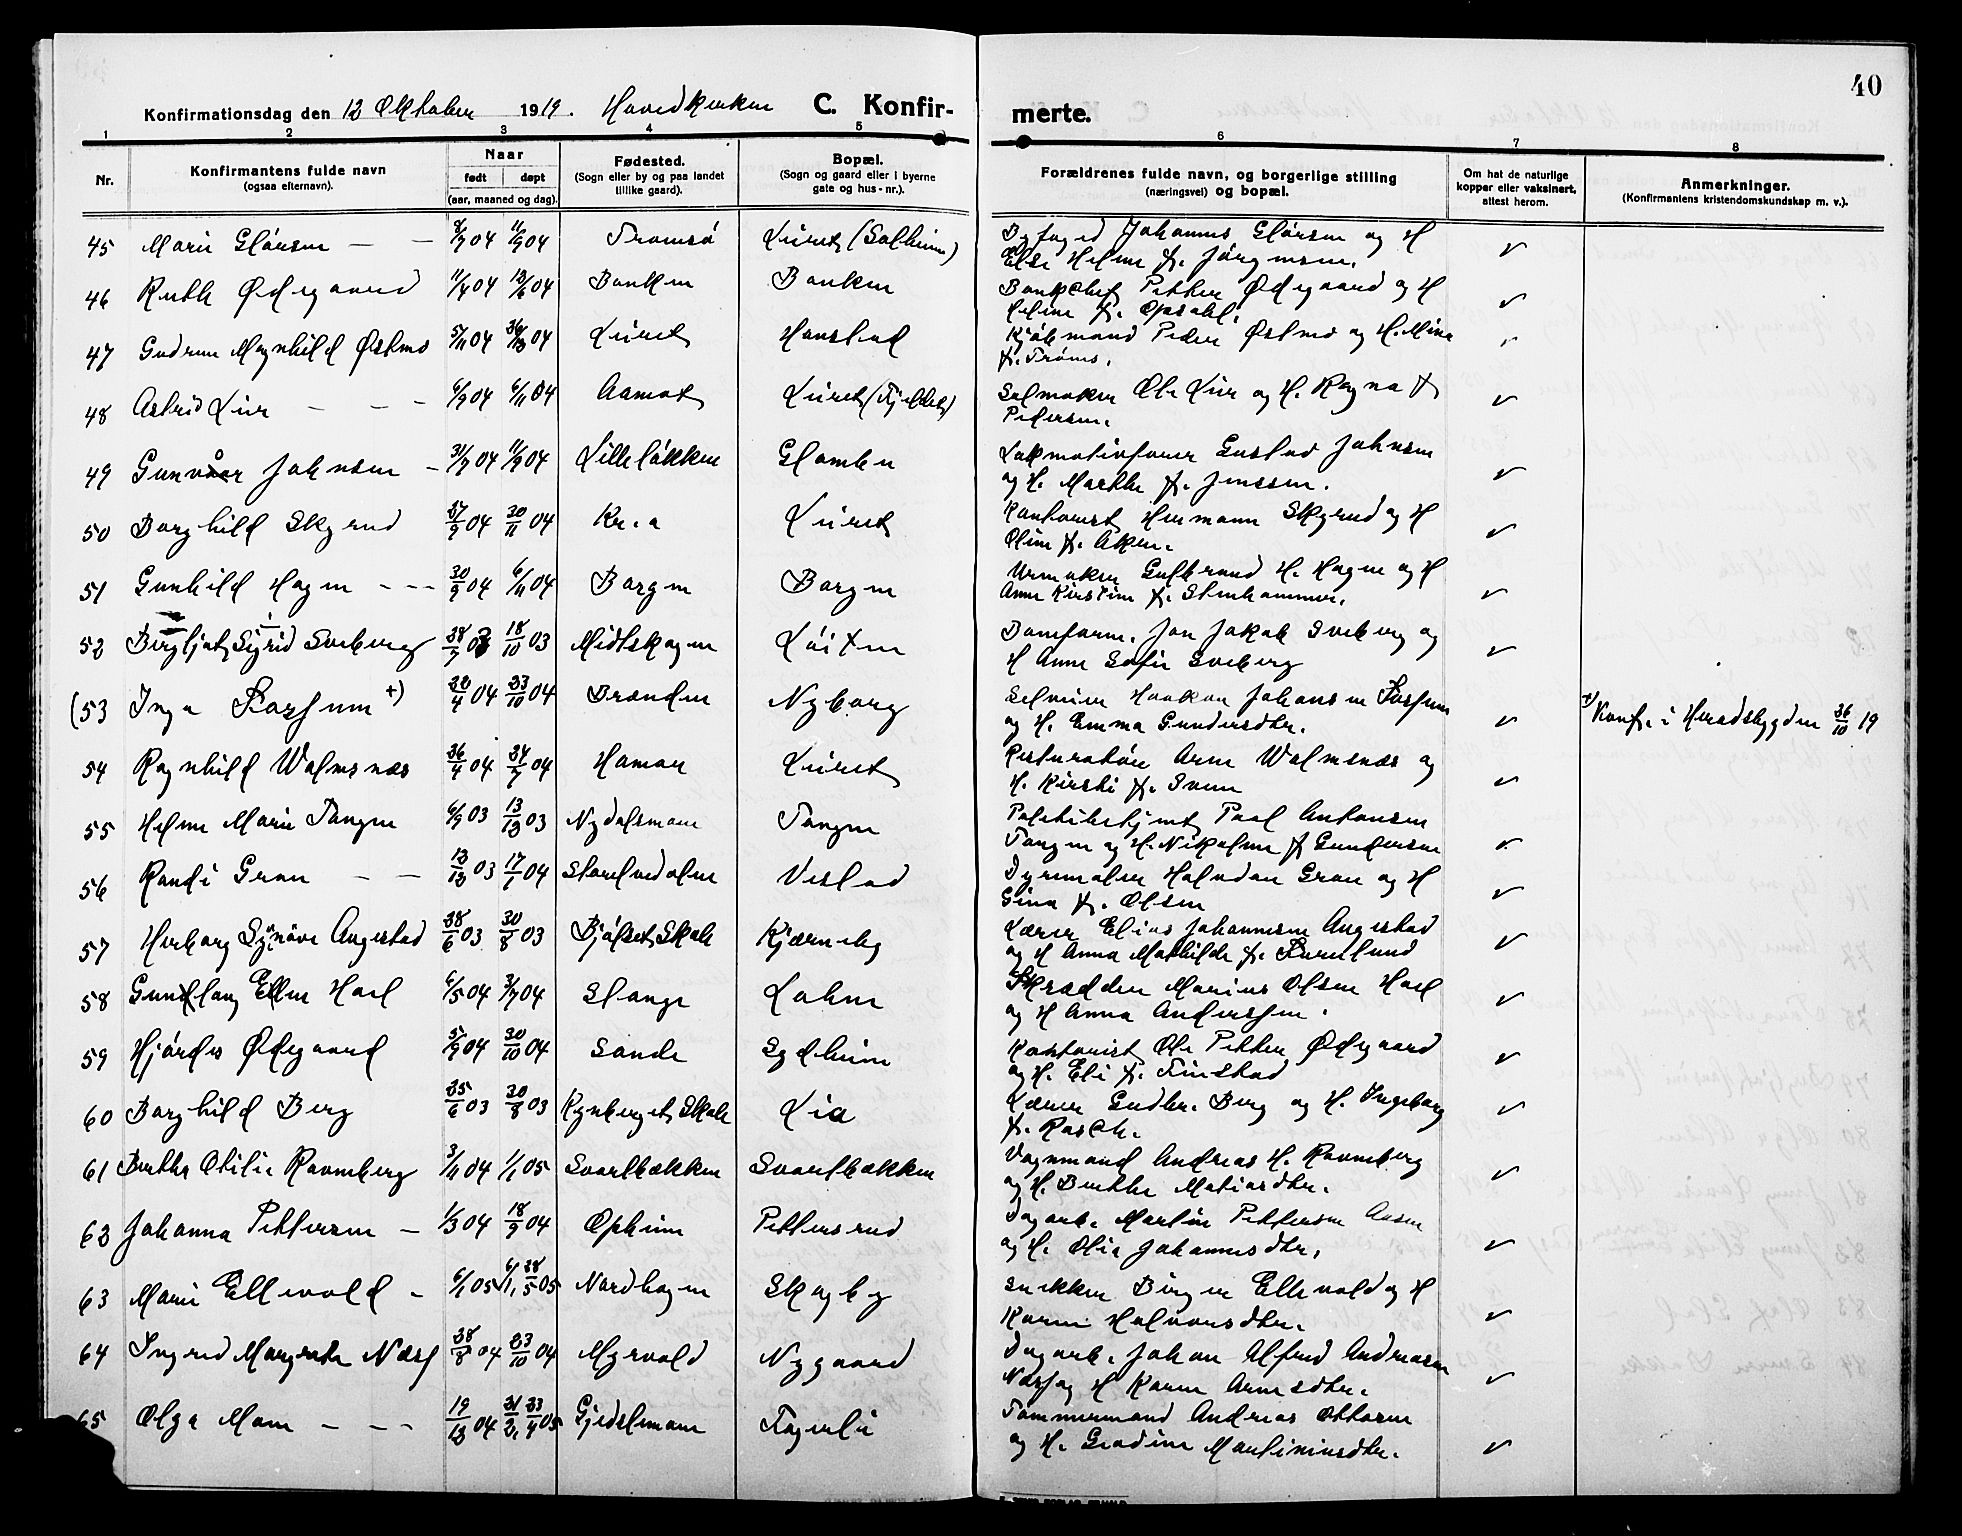 40
Konfirmationsdag den 12 Oktober 1919. Hovedkirken C. Konfirmerte.
1 2 3 4 5 6 7 8
Nr.
Konfirmantens fulde navn
(ogsaa efternavn).
Naar
født døpt
(aar, maaned og dag).
Fødested.
(Sogn eller by og paa landet
tillike gaard).
Bopæl.
(Sogn og gaard eller i byerne
gate og hus-nr.).
Forældrenes fulde navn, og borgerlige stilling
(næringsvei) og bopæl.
Om hat de naturlige
kopper eller vaksinert,
attest herom.
Anmerkninger.
(Konfirmantens kristendomskundskap m. v.).
45 Marie Glørsen — — 8/7 04 11/9 04 Tromsø Liiret (Solheim) Byfoged Johannes Glørsen og H
Else Helene f. Jørgensen. ✓
46 Ruth Ødegaard 11/4 04 12/6 04 Banken Banken Bankchef Petter Ødegaard og H
Helene f. Opsahl. ✓
47 Gudrun Magnhild Østmo 5/11 04 26/12 04 Liiret Hanstad Kjøbmand Peder Østmo og H. Mina
f. Trøms. ✓
48 Astrid Liir — — — 6/9 04 6/11 04 Aamot Liiret (Fjeldet) Salmaker Ole Liir og H. Ragna f
Pedersen. ✓
49 Gunvor Johnsen — 31/7 04 11/9 04 Lilleløkken Glomben Lokmotivfører Gustav Johnsen
og H. Marthe f. Jenssen. ✓
50 Borghild Skyrud 27/9 04 20/11 04 Kr.a Liiret Kontorist Hermann Skyrud og H
Oline f. Aker. ✓
51 Gunhild Hagen — — — 30/9 04 6/11 04 Borgen Borgen Urmaker Gulbrand H. Hagen og H
Anne Kirstine f. Stenhammer. ✓
52 Bergljot Sigrid Sveberg 28/7 03 18/10 03 Midtskogen Løiten Baneform. Jon Jakob Sveberg og
H Anne Sofie Sveberg ✓
(53 Inga Fossum +) 22/4 04 23/10 04 Brænden Nyborg Selveier Haakon Johansen Fossum
og H. Emma Gundersdtr. ✓ +) Konf. i Heradsbygden 26/10 19
54 Ragnhild Walmsnæs 26/4 04 24/7 04 Hamar Liiret Restauratør Arne Walmsnæs og
H. Kirsti f. Sveen ✓
55 Helene Marie Tangen 6/9 03 13/12 03 Nydalsmoen Tangen Politibetjent Paul Antonsen
Tangen og H. Nikoline f Gundersen ✓
56 Randi Gran — — 12/12 03 17/1 04 Storelvedalen Vestad Dyremaler Halvdan Gran og H
Gina f. Olsen ✓
57 Herborg Synnøve Angestad 28/6 03 30/8 03 Bjølset Skole Kjærneby Lærer Elias Johannesen Angestad
og H Anna Mathilde f. Furulund ✓
58 Gunlaug Ellen Hoel 6/5 04 3/7 04 Stange Lohne Skrædder Marius Olsen Hoel
og H Anna Andersen. ✓
59 Hjørdis Ødegaard 5/9 04 30/10 04 Sande Sydheim Kontorist Ole Petter Ødegaard
og H. Eli f. Finstad ✓
60 Borghild Berg 25/6 03 30/8 03 Kynberget Skole Lia Lærer Gudbr. Berg og H. Ingeborg
f. Rasch. ✓
61 Berthe Otilie Ravneberg 3/11 04 1/1 05 Svartbækken Svartbækken Vognmand Andreas H. Ravneberg
og H. Berthe Matiasdtr. ✓
62 Johanna Pettersen — 1/3 04 18/9 04 Opheim Pettersrud Dagarb. Martin Pettersen Aasen
og H. Olia Johannesdtr. ✓
63 Marie Ellevold - 6/1 05 6/1, 28/5 05 Nordhagen Skogby Snekker Birger Ellevold og H
Karen Halvorsdtr. ✓
64 Ingrid Margrete Næss 28/8 04 23/10 04 Myrvold Nygaard Dagarb. Johan Alfred Andreasen
Næss og H Karen Arnesdtr. ✓
65 Olga Moen — — — 19/12 04 21/2, 23/4 05 Gjedslemoen Fagerli Tømmermand Andreas Ottosen
og H. Gradine Martiniusdtr. ✓